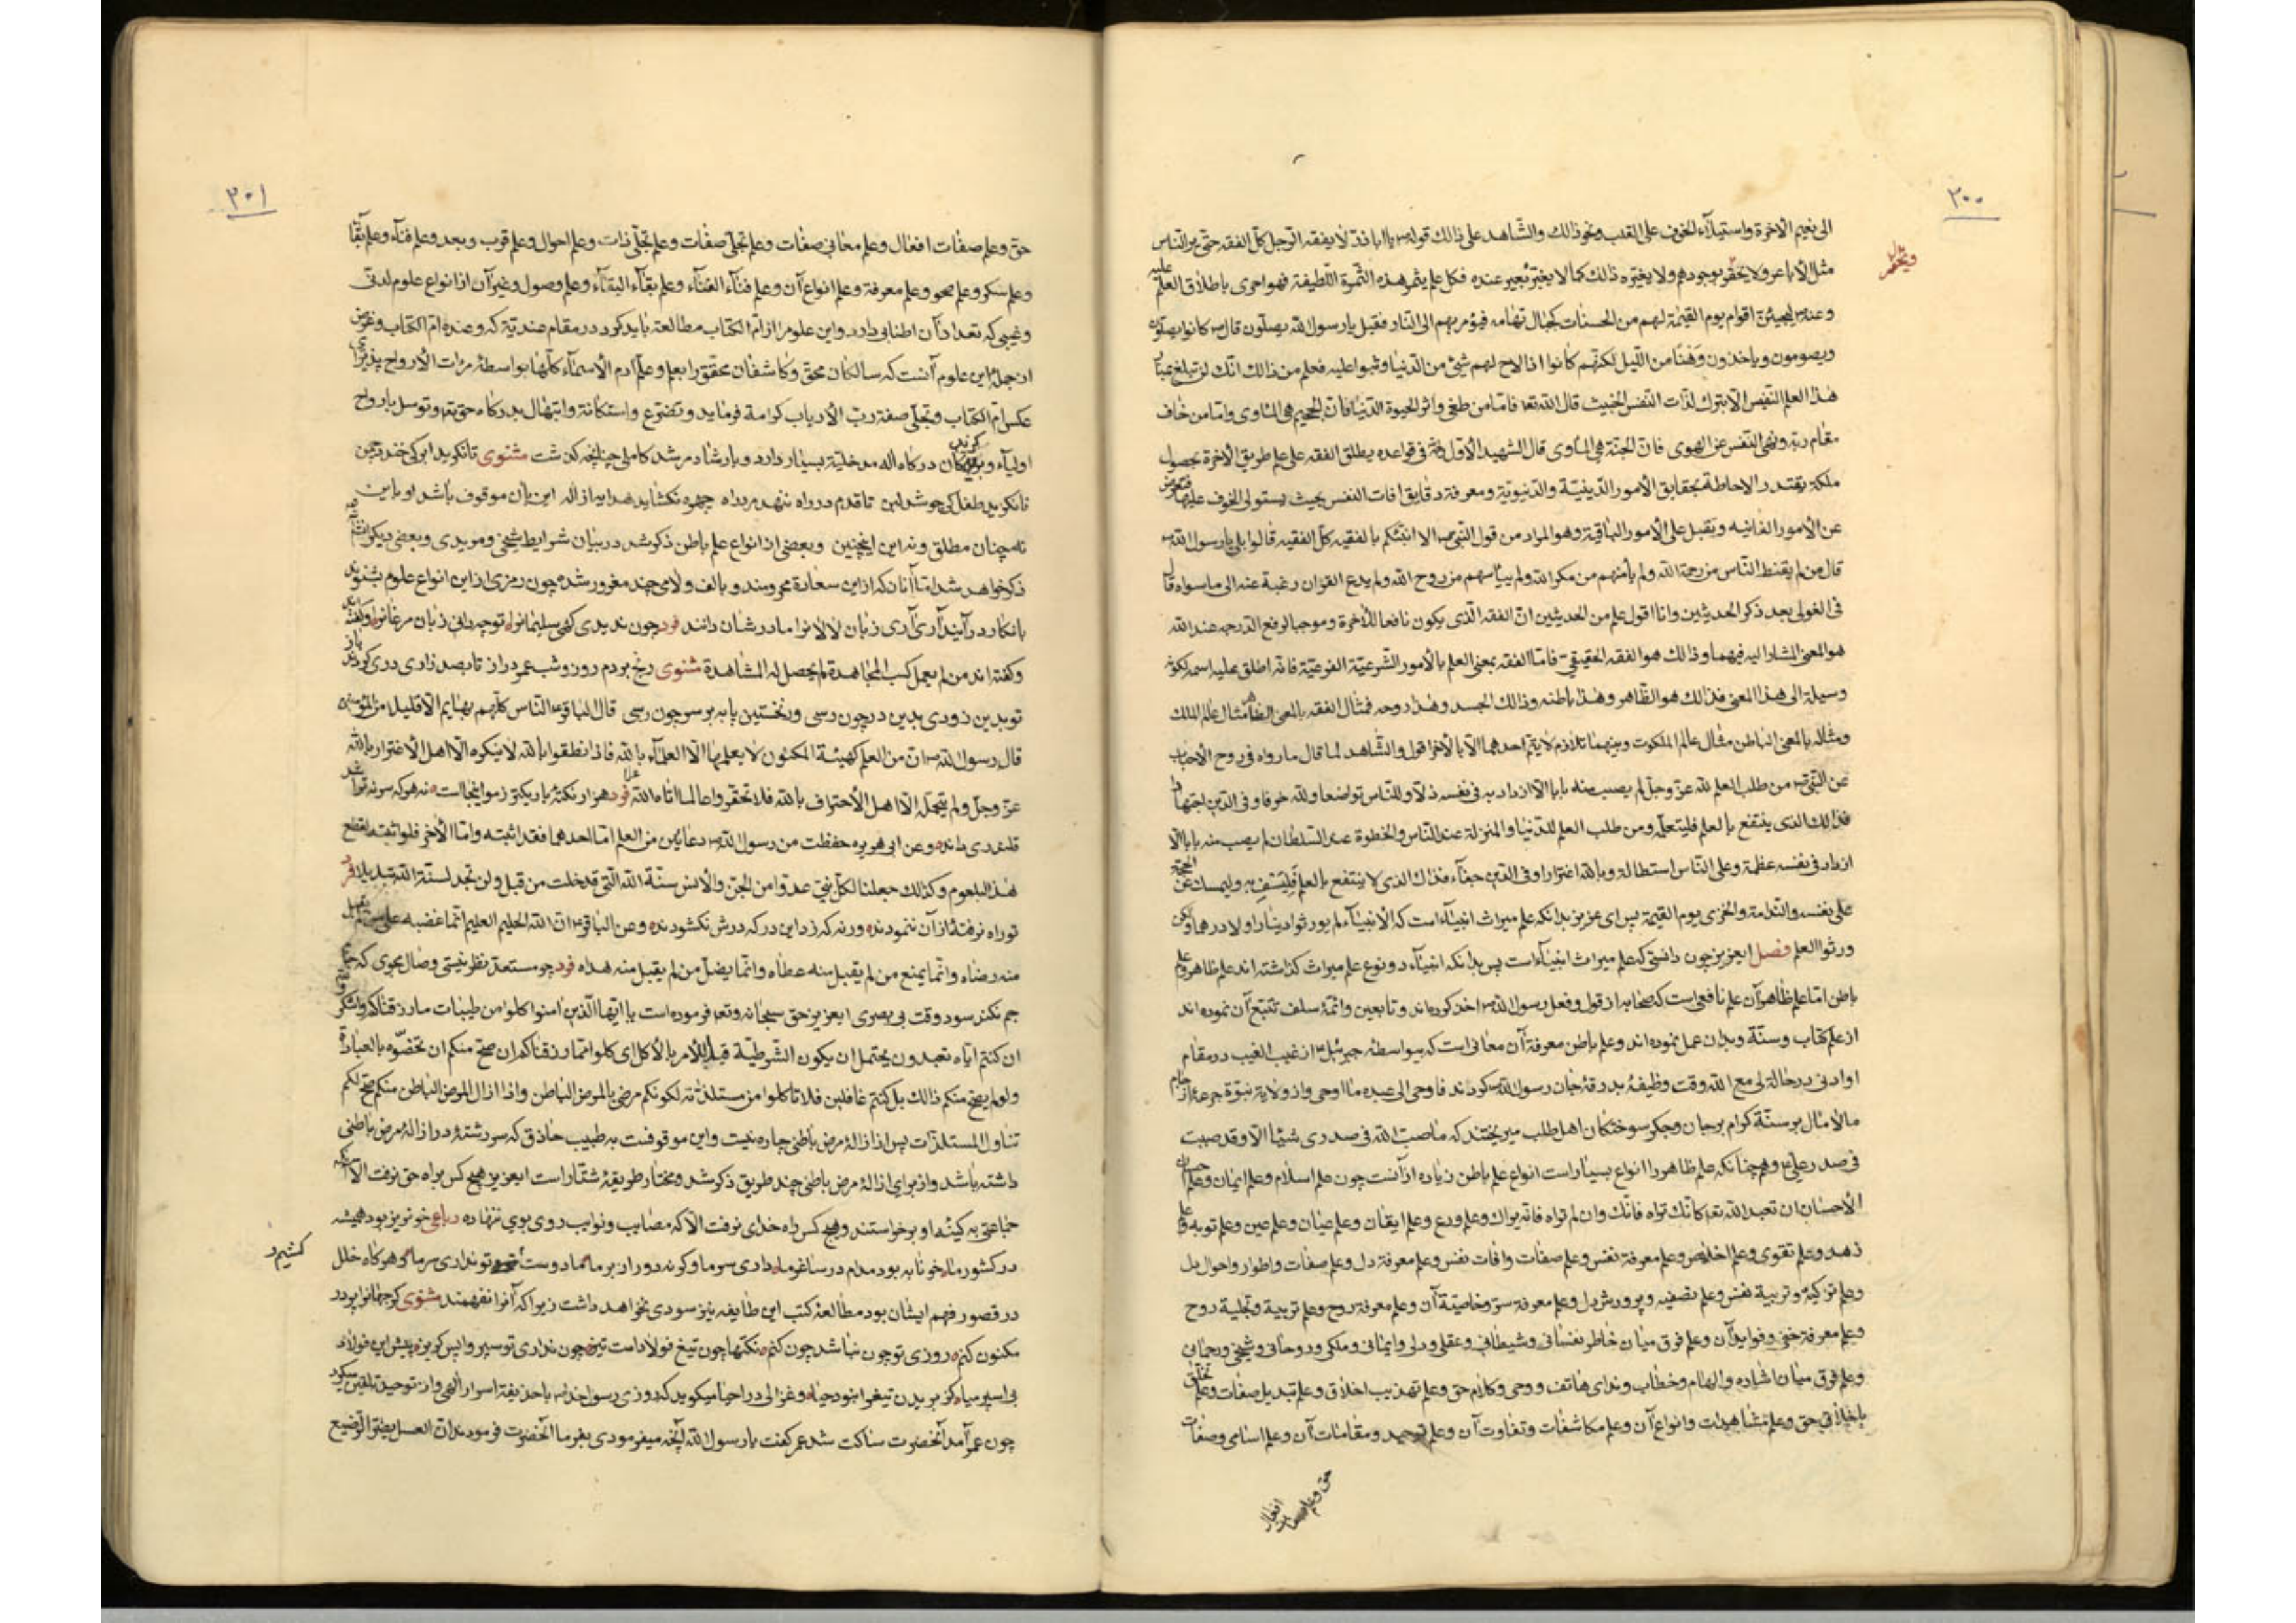 ٢٠٠
الى نعيم الاخرة واستيلآء الخوف على القلب ونحو ذالك والشاهد على ذالك قوله ص يا اباذر لا يفقه الرجل كل الفقه حتى يرالناس
مثل الأباعر ولا يحفر بوجودهم ولا يغيره ذالك كما لا يغيره بعير عنده فكل علم يثمر هذه الثمرة اللطيفة فهو احرى باطلاق العلم عليه
وعنه ص ليجيئن اقوام يوم القيمة لهم من الحسنات كجبال تهامه فيؤمر بهم الى النار فقيل يا رسول الله يصلون قال ص كانوا يصلون
ويصومون وياخذون وهنا من الليل لكنهم كانوا اذا لاح لهم شئ من الدنيا وثبوا عليه فعلم من ذالك انك لن تبلغ
هذا العلم النفيس الا بترك لذات النفس الخبيث قال الله تعا فاما من طغى واثر الحيوة الدنيا فان الجحيم هى الماوى واما من خاف
مقام ربه ونهى النفس عن الهوى فان الجنة هي المأوى قال الشهيد الأول فى قواعده يطلق الفقه على علم طريق الآخرة بحصول
ملكة يقتدر الاحاطة بحقايق الأمور الدينية والدنيوية ومعرفة دقايق افات النفس بحيث يستولى الخوف عليها فتعرض
عن الأمور الفانيه ويقبل على الأمور الباقية وهو المراد من قول النبى ص الا انبئكم بالفقيه كل الفقيه قالوا بلى يا رسول الله ص
قال من لم يقنط الناس من رحمة الله ولم يأمنهم من مكر الله ولم ييأسهم من روح الله ولم يدع القران رغبة عنه الى ماسواه قال
فى الغوالى بعد ذكر الحديثين وانا اقول علم من الحديثين ان الفقه الذى يكون نافعا للآخرة وموجبا لرفع الدرجه عند الله
هو المعنى المشار اليه فيهما وذالك هو الفقه الحقيقى فاما الفقه بمعنى العلم بالأمور الشرعية الفرعية فانه اطلق عليه اسمه لكونه
وسيلة الى هذا المعنى فذالك هو الظاهر وهذا باطنه وذالك الجسد وهذا روحه فمثال الفقه بالمعنى الظاهر مثال عالم الملك
ومثاله بالمعنى الباطن مثال عالم الملكوت وبينهما تلازم لا يتم احدهما الا بالأخر اقول والشاهد لما قال مارواه فى روح الأحباب
عن النبى ص من طلب العلم لله عز وجل لم يصب منه بابا الا ازداد به فى نفسه ذلا وللناس تواضعا ولله خوفا وفى الدين اجتهادا
فذالك الذى ينتفع بالعلم فليتعلمه ومن طلب العلم للدنيا والمنزلة عند الناس والخطوة عند السلطان لم يصب منه بابا الا
ازداد فى نفسه عظمة وعلى الناس استطالة وبالله اغترارا وفى الدين جفآء فذالك الذى لا ينتفع بالعلم فليسف به وليمسك عن الحجة
على نفسه والندامة والخزى يوم القيمة پس اى عزيز بدانكه علم ميراث انبيآء است كه الأنبيآء لم يورثوا دينارا ولا درهما ولكن
ورثوا العلم فصل ايعزيز چون دانستى كه علم ميراث انبيآء است پس بدانكه انبيآء دو نوع علم ميراث گذاشته اند علم ظاهر وعلم
باطن اما علم ظاهر آن علم نافعى است كه صحابه از قول وفعل رسول الله ص اخذ كرده اند وتابعين وائمهٔ سلف تتبع آن نموده اند
از علم كتاب وسنة وبدان عمل نموده اند وعلم باطن معرفة آن معانى است كه بيواسطهٔ جبرئيل از غيب الغيب در مقام
او ادنى در حالة لى مع الله وقت وظيفهٔ بدرقهٔ جان رسول الله ص كردند فاوحى الى عبده ما اوحى واز ولاية نبوة جرعهٔ از جام
مالامال بر سنة كرام بر جان وجگر سوختگان اهل طلب ميريختند كه ماصب الله فى صدرى شيئا الا وقد صببت
فى صدر على ع وهمچنانكه علم ظاهر را انواع بسيار است انواع علم باطن زياده از آنست چون علم اسلام وعلم ايمان وعلم احسان
الأحسان ان تعبد الله تعا كانك تراه فانك وان لم تراه فانه يراك وعلم ورع وعلم ايقان وعلم عيان وعلم عين وعلم توبه وعلم
زهد وعلم تقوى وعلم اخلاص وعلم معرفة نفس وعلم صفات وافات نفس وعلم معرفة دل وعلم صفات واطوار واحوال دل
وعلم تزكيه وتربية نفس وعلم تصفيه وپرورش دل وعلم معرفة سر وخاصية آن وعلم معرفة روح وعلم تربية وتجلية روح
وعلم معرفة خفى وفوايد آن وعلم فرق ميان خاطر نفسانى وشيطانى وعقلى ودلى وايمانى وملكى وروحانى وشيخى ورحمانى
وعلم فرق ميان اشاره والهام وخطاب ونداى هاتف ووحى وكلام حق وعلم تهذيب اخلاق وعلم تبديل صفات وعلم تخلق
باخلاق حق وعلم مشاهدات وانواع آن وعلم مكاشفات وتفاوت آن وعلم توحيد ومقامات آن وعلم اسامى وصفات
حق وعلم صفات افعال
٢٠١
حق وعلم صفات افعال وعلم معانى صفات وعلم تجلى صفات وعلم تجلى ذات وعلم احوال وعلم قرب وبعد وعلم فنآء وعلم بقآ
وعلم سكر وعلم صحو وعلم معرفة وعلم انواع آن وعلم فنآء الفنآء وعلم بقآء البقآء وعلم وصول وغير آن از انواع علوم لدنى
وغيبى كه تعداد آن اطنابى دارد واين علوم را از ام الكتاب مطالعه بايد كرد در مقام عنديّة كه وعنده ام الكتاب وغرض
از جملهٔ اين علوم آنست كه سالكان محق وكاشفان محقق را بعلم وعلم آدم الأسمآء كلها بواسطهٔ مرات الأرواح پذيراى
عكس ام الكتاب وتجلى صفة رب الأرباب كرامة فرمايد وتضرع واستكانة وابتهال بدرگاه حق تعا وتوسل بارواح
اوليآء وبزرگان درگاه اله مدخلية بسيار دارد وبارشاد مرشد كاملى چنانچه گذشت مثنوى تا نگريد ابر كى خندد چمن
تا نگريد طفل كى جوشد لبن تا قدم در راه ننهد مرد راه چهره نگشايد هدايه از اله اين بآن موقوف باشد او باين
نه چنان مطلق ونه اين اينچنين وبعضى از انواع علم باطن ذكر شد در بيان شرايط شيخى ومريدى وبعضى ديگر انشآء الله
ذكر خواهد شد اما آنانكه از اين سعادة محروسند وبالف ولامى چند مغرور شده چون رمزى از اين انواع علوم بشنوند
بانكار در آيند آرى آرى زبان لالا نرا مادرشان دانند فرد چون نديدى گهى سليمانرا توچه دانى زبان مرغانرا
وگفته اند من لم يعمل كسب المجاهدة لم يحصل له المشاهدة مثنوى رنج بردم روز وشب عمر دراز تا بصد زارى درى كردند باز
تو بدين زودى بدين در چون رسى ونخستين پايه بر سر چون رسى قال الباقر ع الناس كلهم بهايم الا قليلا من المؤمنين
قال رسول الله ص ان من العلم كهيئة المكنون لا يعلمها الا العلمآء بالله فاذا نطقوا بالله لا ينكره الا اهل الأغترار بالله
عز وجل ولم يتحمله الا اهل الأعتراف بالله فلا تحقروا عالما اتاه الله فرد هزار نكتهٔ باريكتر ز مو اينجاست نه هر كه سر نه تراشد
قلندرى داند وعن ابى هريره حفظت من رسول الله ص دعائين من العلم اما احدهما فقد اثبته واما الآخر فلو اثبته لقطع
هذا البلعوم وكذالك جعلنا لكل نبى عدوا من الجن والأنس سنة الله التى قد خلت من قبل ولن تجد لسنة الله تبديلا فرد
تو راه نرفتهٔ از آن ننمودند ورنه كه زد اين در كه درش نگشودند وعن الباقر ع ان الله الحليم العليم انما غضبه على من لم يقبل
منه رضاه وانما يمنع من لم يقبل منه عطاه وانما يضل من لم يقبل منه هداه فرد چو مستعد نظر نيستى وصال مجوى كه جام
جم نكند سود وقت بى بصرى ايعزيز حق سبحانه وتعا فرموده است يا ايها الذين امنوا كلوا من طيبات مارزقناكم واشكروا
ان كنتم اياه تعبدون يحتمل ان يكون الشرطية قيدا للأمر بالأكل اى كلوا مما رزقناكم ان صح منكم ان تخصوه بالعبادة
ولو لم يصح منكم ذالك بل كنتم غافلين فلا تأكلوا من مستلذاته لكونكم مرضى بالمرض الباطن واذا ازال المرض الباطن منكم صح لكم
تناول المستلذات پس از ازالهٔ مرض باطنى چاره نيست واين موقوفست به طبيب حاذق كه سر رشتهٔ در ازالهٔ مرض باطنى
داشته باشد واز براى ازالهٔ مرض باطنى چند طريق ذكر شد ومختار طريقهٔ شتار است ايعزيز هيچ كس براه حق نرفت الا آنكه
جماعتى به كيند او برخواستند وهيچ كس راه خداى نرفت الا كه مصايب ونوايب روى بوى ننهاده رباعى خونريز بود هميشه
در كشور ما خونابه بود مدام در ساغر ما دارى سر ما وگرنه دور از بر ما ما دوست كشيم وتو ندارى سر ما وهرگاه خلل
در قصور فهم ايشان بود مطالعهٔ كتب اين طايفه نيز سودى نخواهد داشت زيرا كه آنرا نفهمند مثنوى گر جهانرا پر در
مكنون كنم روزى تو چون نباشد چون كنم نكتها چون تيغ فولاد است تيز چون ندارى تو سپر واپس گريز پيش اين فولاد
بى اسپر ميا كز بريدن تيغ را نبود حيا وغزالى در احيا ميگويد كه روزى رسول خدا ص با حذيفة اسرار الهى وار توحيد تلقين ميكرد
چون عمر آمد آنحضرت ساكت شد عمر گفت يا رسول الله آنچه ميفرمودى بفرما آنحضرت فرمودند ان العسل يضر الرضيع
كشيم و